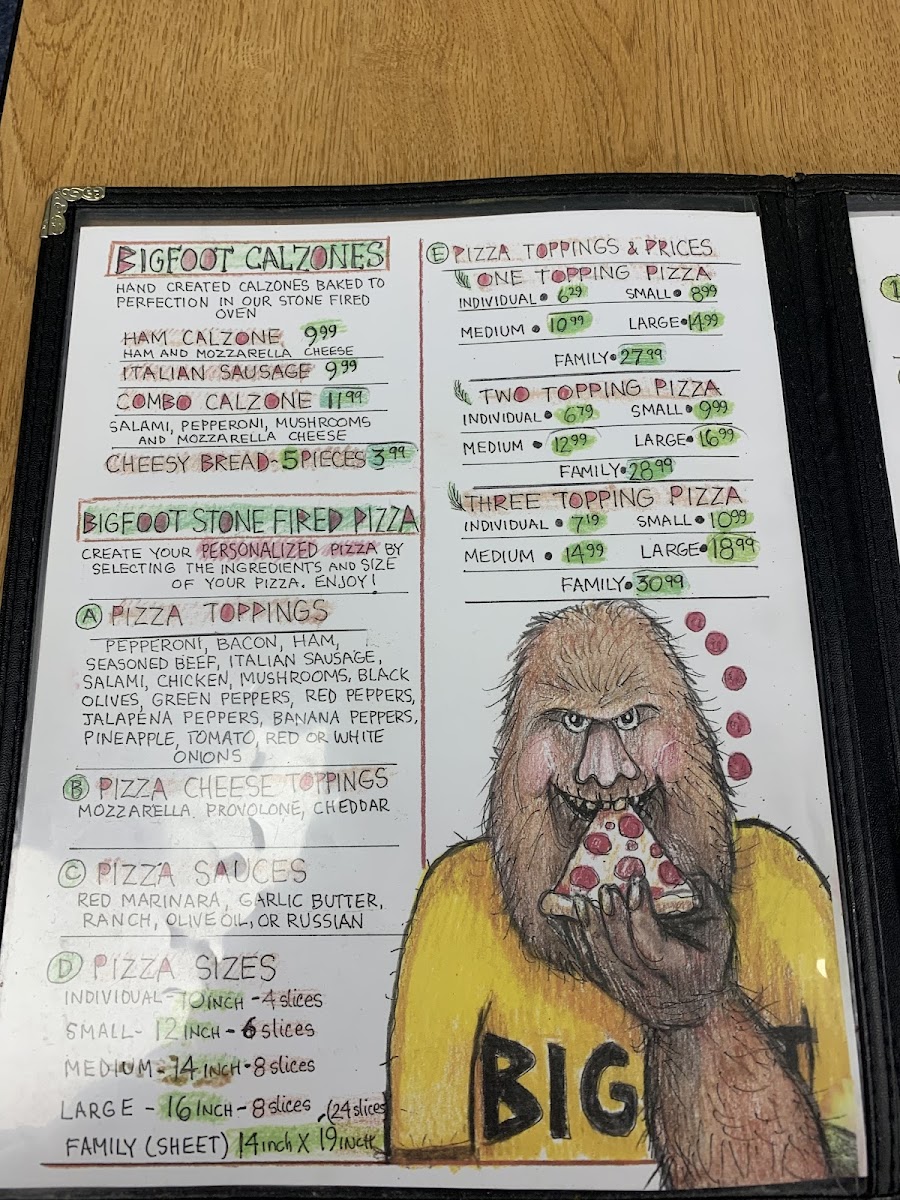 BIGFOOT CALZONES
HAND CREATED CALZONES BAKED TO
PERFECTION IN OUR STONE FIRED
OVEN
HAM CALZONE 9.99
HAM AND MOZZARELLA CHEESE
ITALIAN SAUSAGE 9.99
COMBO CALZONE 11.99
SALAMI, PEPPERONI, MUSHROOMS
AND MOZZARELLA CHEESE
CHEESY BREAD-5 PIECES 3.99
BIGFOOT STONE FIRED PIZZA
CREATE YOUR PERSONALIZED PIZZA BY
SELECTING THE INGREDIENTS AND SIZE
OF YOUR PIZZA. ENJOY!
A PIZZA TOPPINGS
PEPPERONI, BACON, HAM,
SEASONED BEEF, ITALIAN SAUSAGE,
SALAMI, CHICKEN, MUSHROOMS, BLACK
OLIVES, GREEN PEPPERS, RED PEPPERS,
JALAPENA PEPPERS, BANANA PEPPERS,
PINEAPPLE, TOMATO, RED OR WHITE
ONIONS
B PIZZA CHEESE TOPPINGS
MOZZARELLA, PROVOLONE, CHEDDAR
C PIZZA SAUCES
RED MARINARA, GARLIC BUTTER,
RANCH, OLIVE OIL, OR RUSSIAN
D PIZZA SIZES
INDIVIDUAL-10 INCH-4 slices
SMALL-12 INCH-6 slices
MEDIUM-14 INCH-8 slices
LARGE-16 INCH-8 slices
(24 slices
FAMILY (SHEET) 14 inch X 19 INCH
E PIZZA TOPPINGS & PRICES
ONE TOPPING PIZZA
INDIVIDUAL • 6.29 SMALL • 8.99
MEDIUM • 10.99 LARGE • 14.99
FAMILY • 27.99
TWO TOPPING PIZZA
INDIVIDUAL • 6.79 SMALL • 9.99
MEDIUM • 12.99 LARGE • 16.99
FAMILY • 28.99
THREE TOPPING PIZZA
INDIVIDUAL • 7.19 SMALL • 10.99
MEDIUM • 14.99 LARGE • 18.99
FAMILY • 30.99
BIG